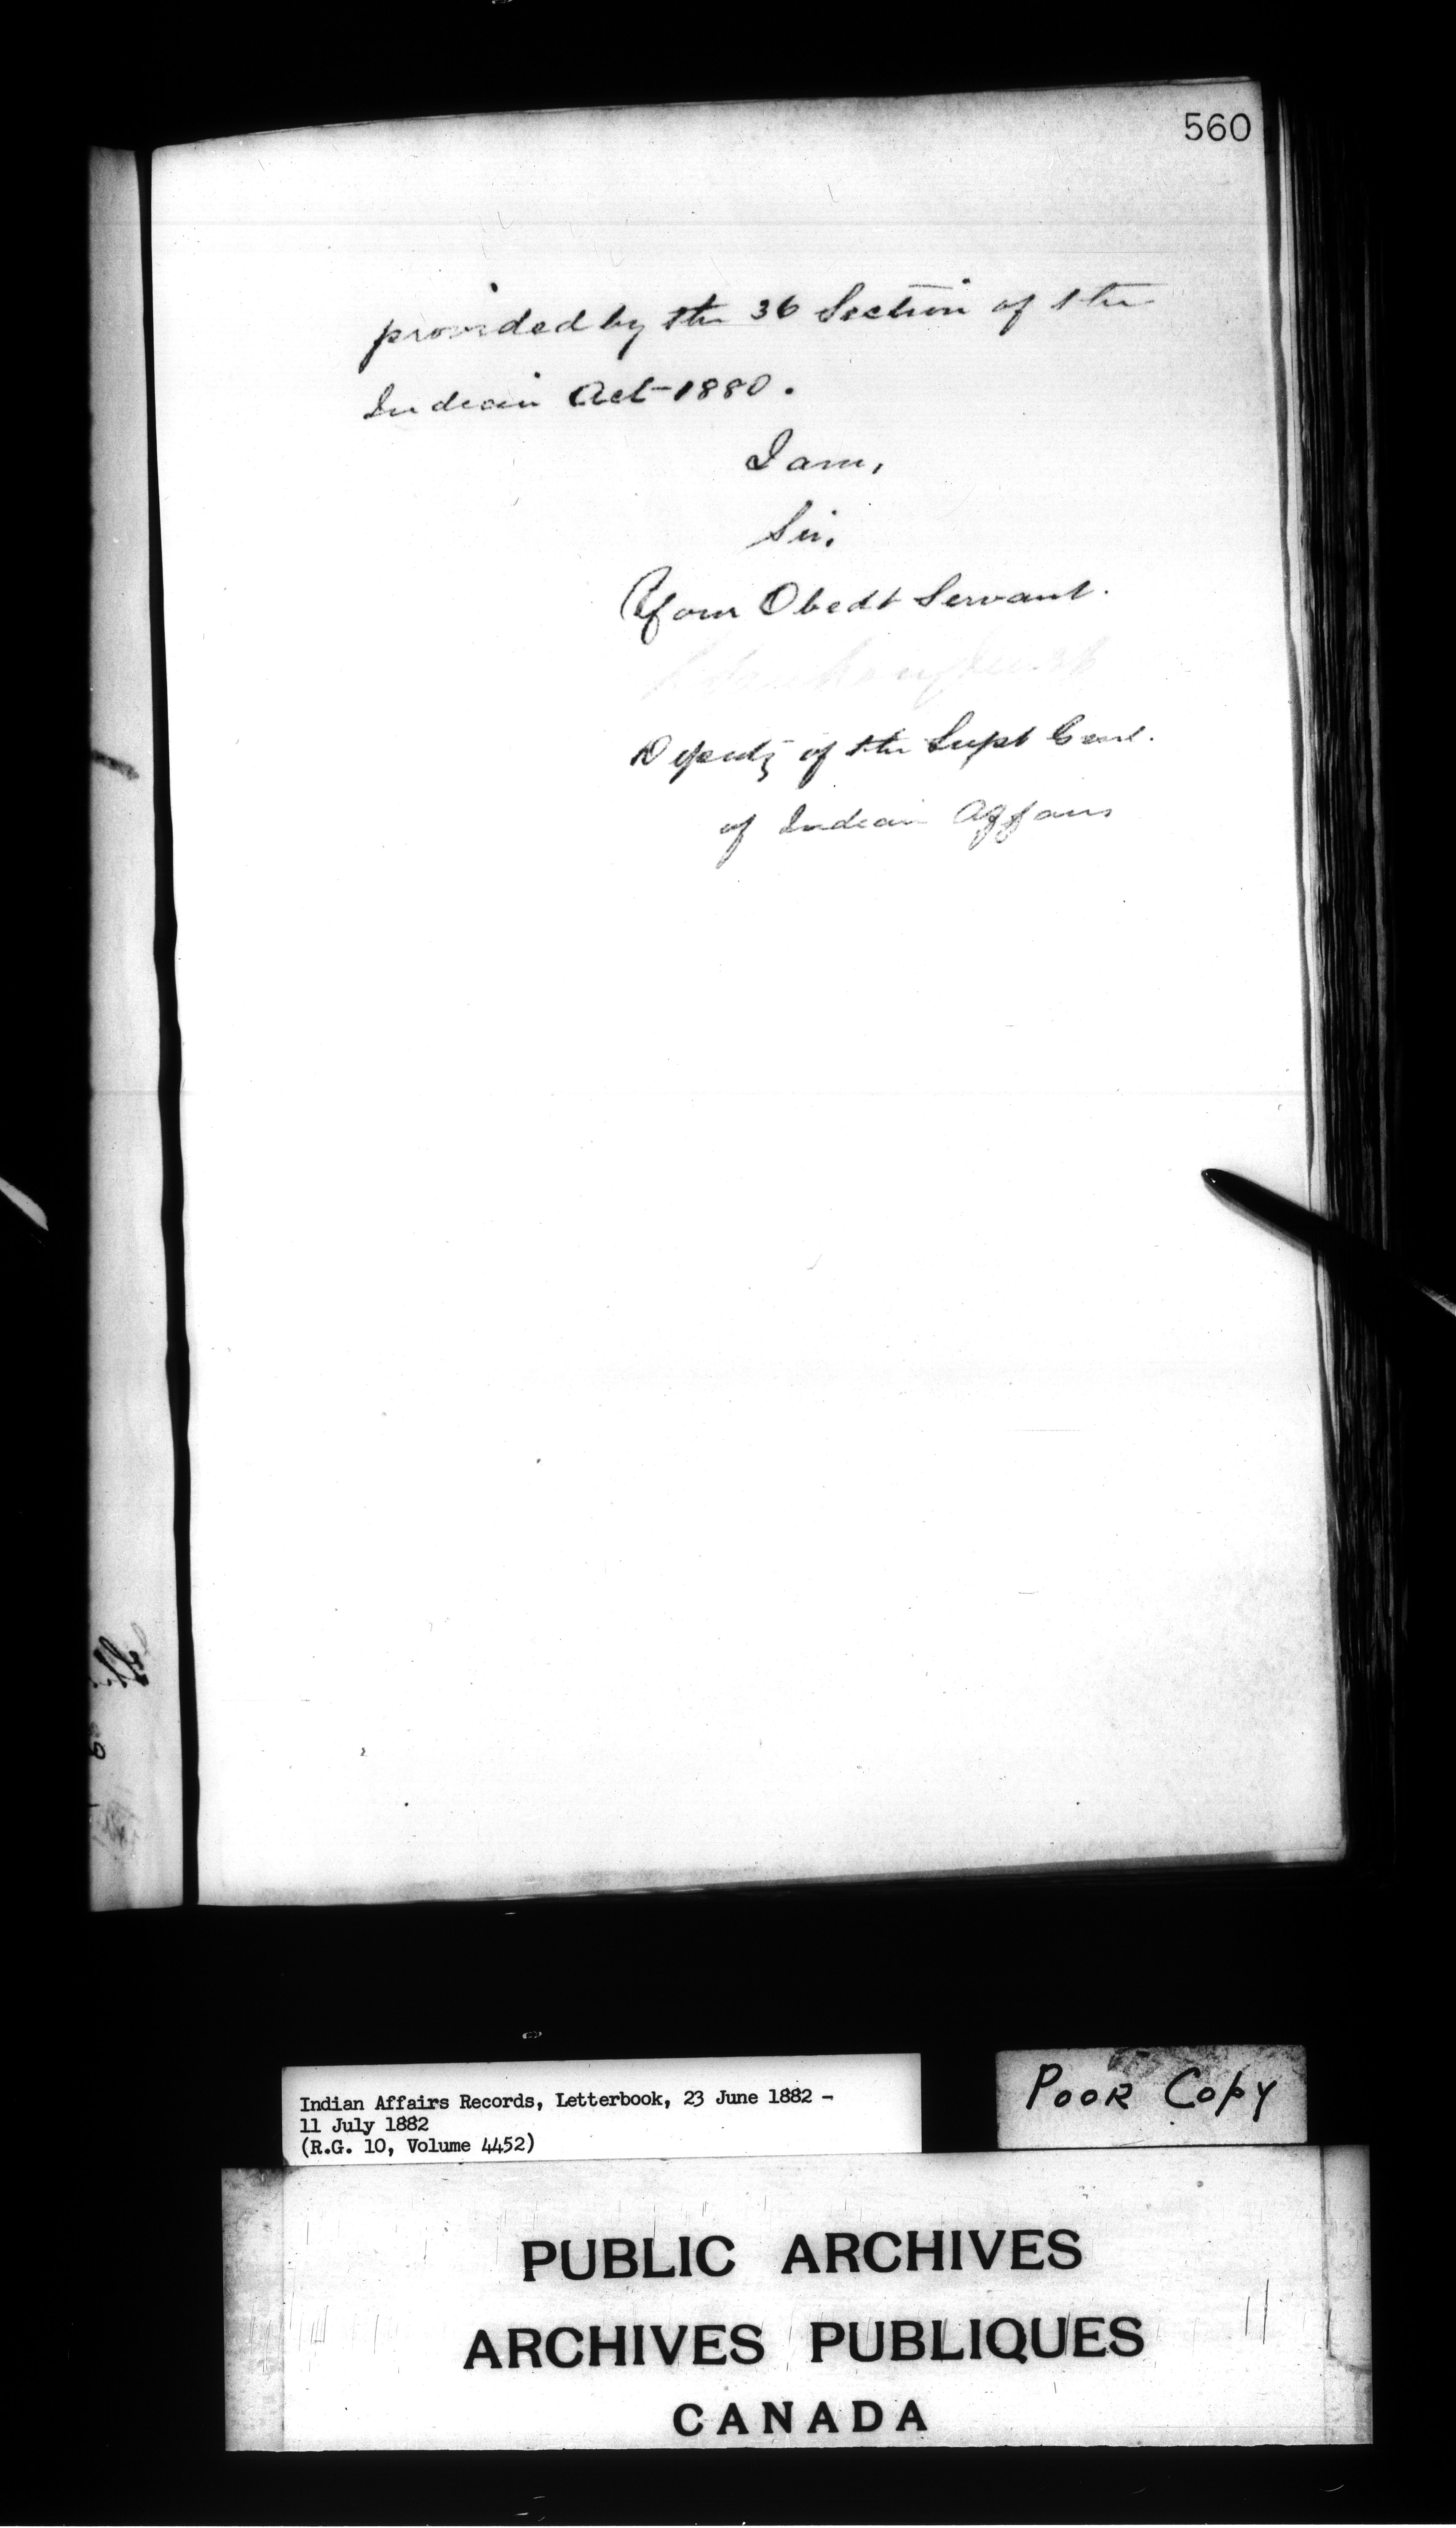 560
provided by the 36 Section of the
Indian Act 1880.
I am,
Sir,
Your Obedt Servant.
Deputy of the Supt Genl.
of Indian Affairs
Indian Affairs Records, Letterbook, 23 June 1882 -
11 July 1882
(R.G. 10, Volume 4452)
POOR COPY
PUBLIC ARCHIVES
ARCHIVES PUBLIQUES
CANADA